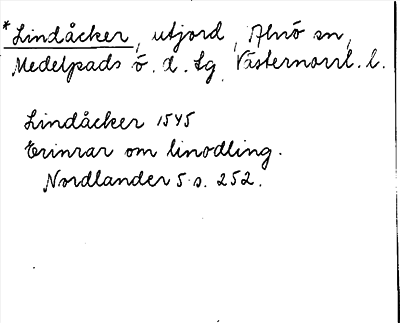 *Lindåcker, utjord, Alnö sn,
Medelpads ö. d. tg Västernorrl. l.
Lindåcker 1545
Erinrar om linodling.
Nordlander 5 s. 252.